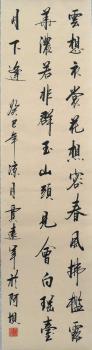 雲想衣裳花想容春風拂檻露
華濃若非群玉山頭見會向瑶臺
月下逢 癸巳年涼月 於阿坝